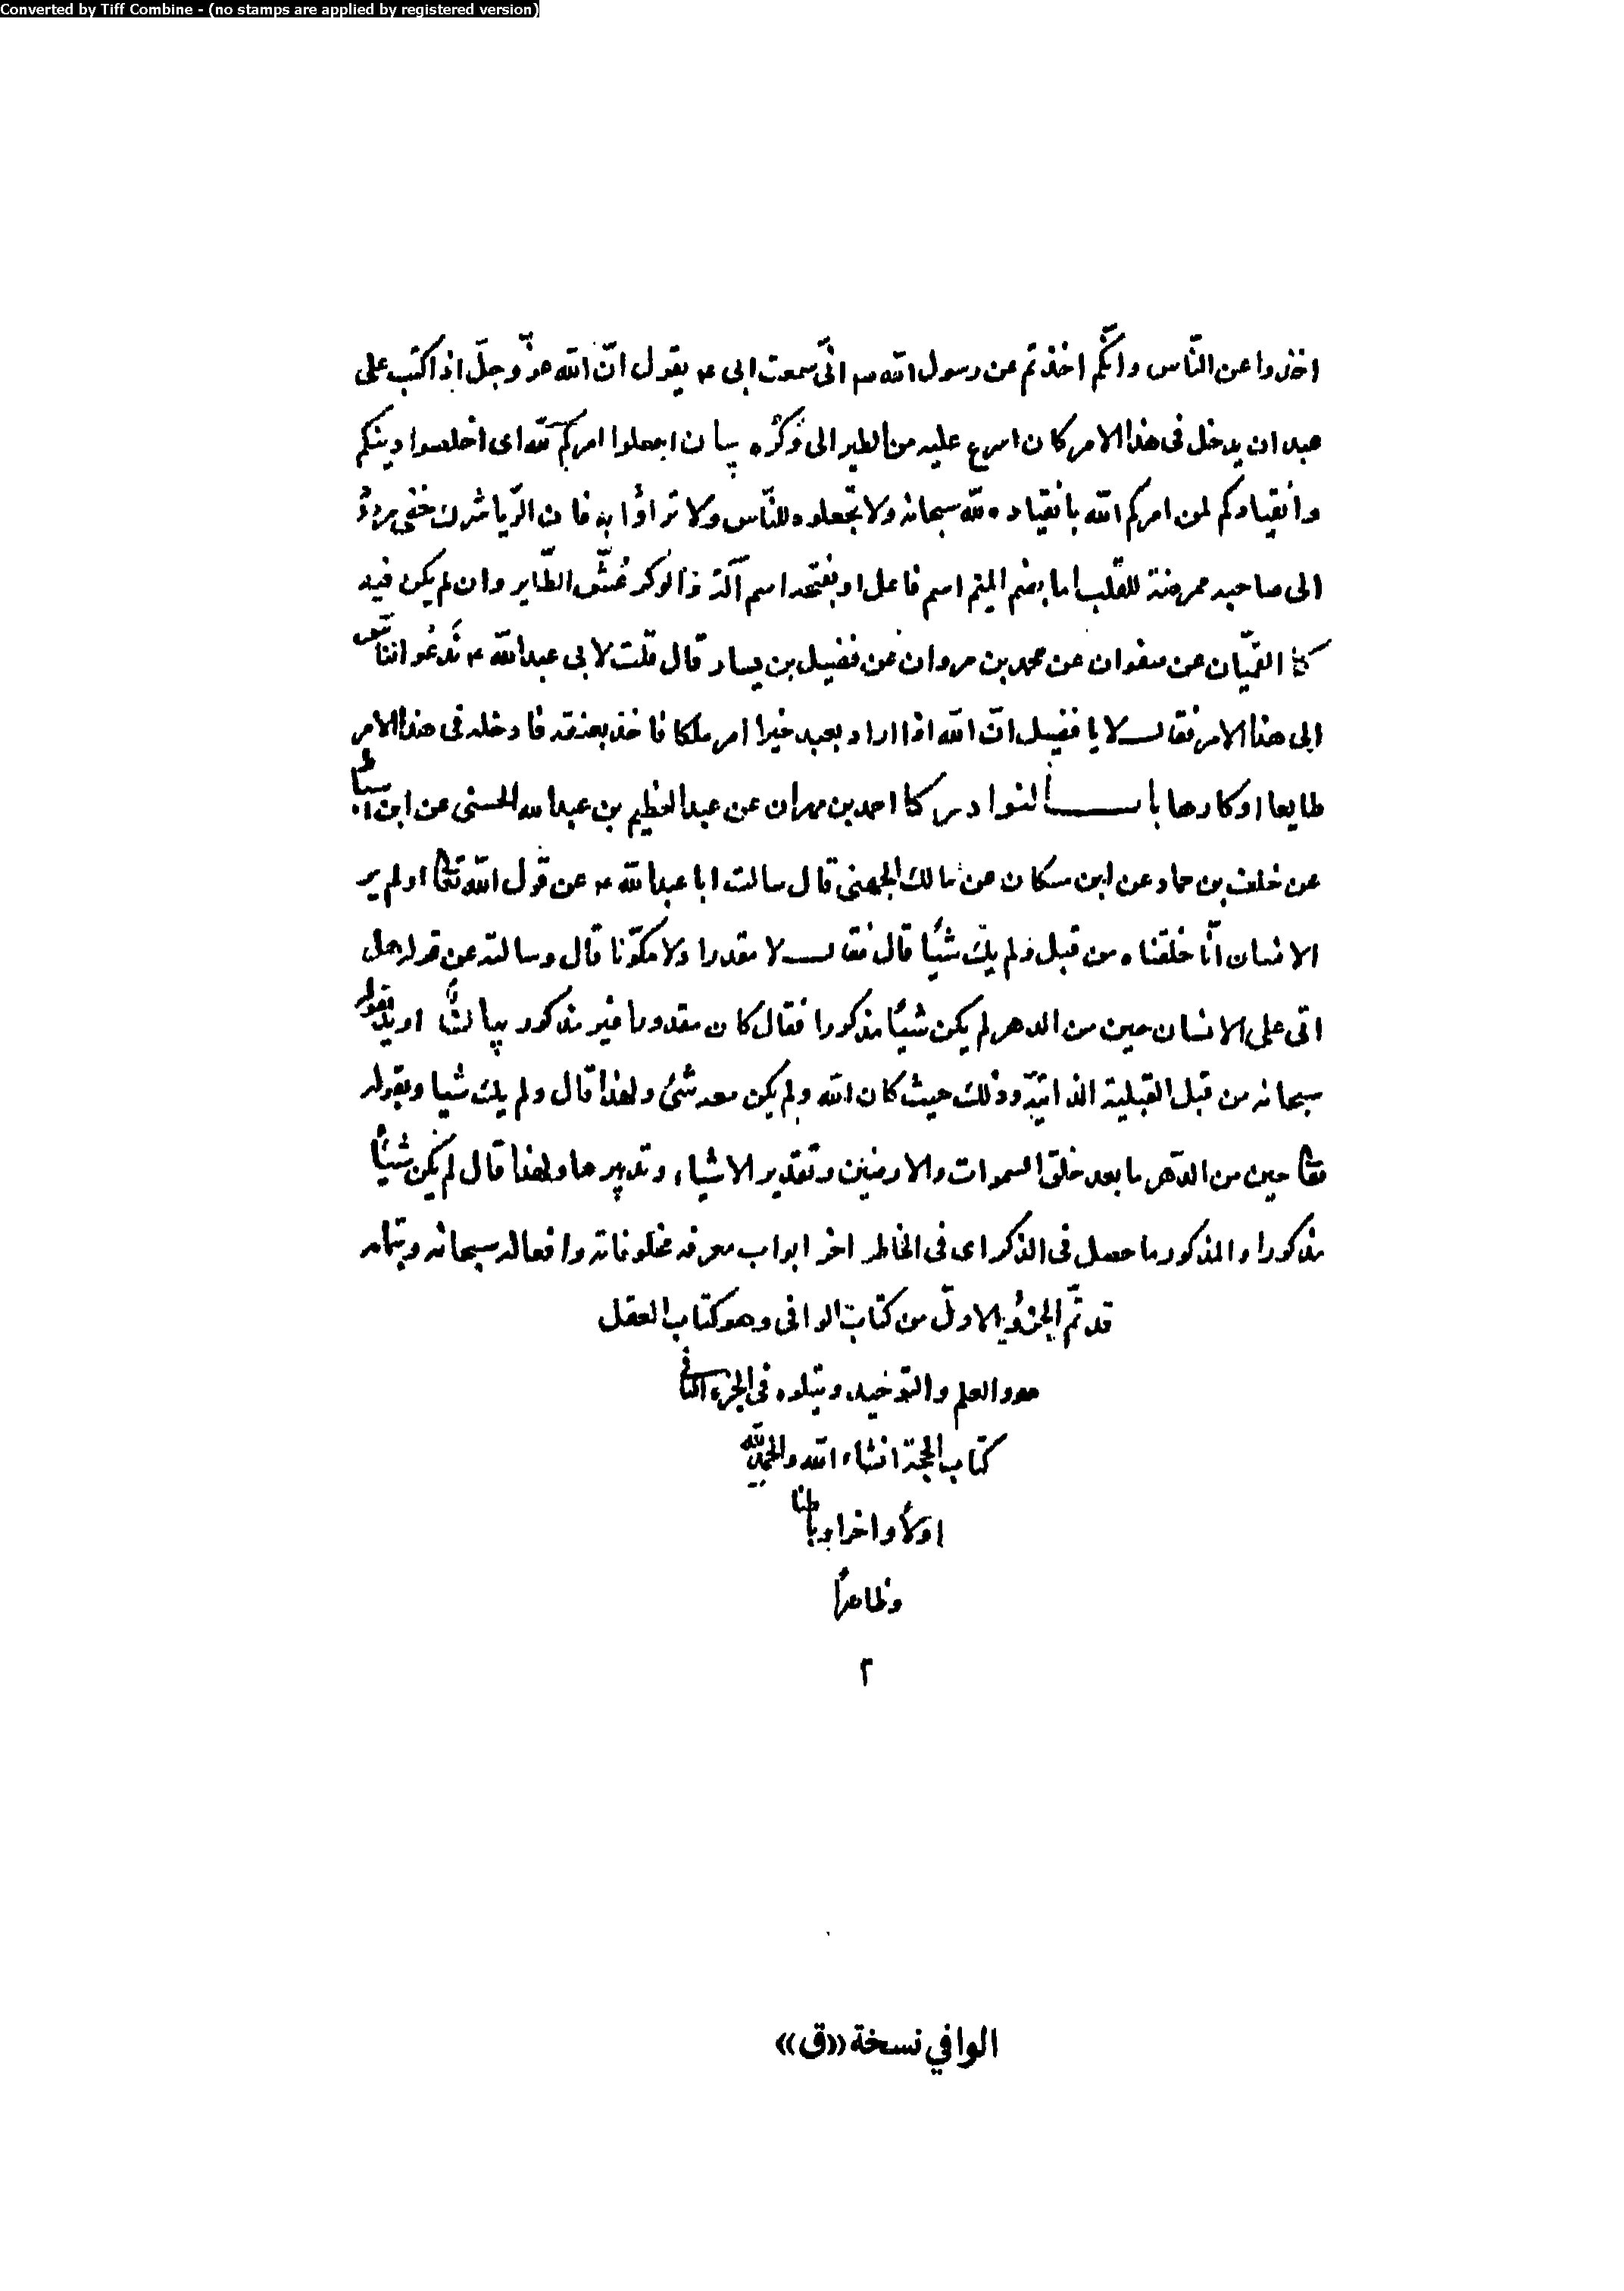 Converted by Tiff Combine - (no stamps are applied by registered version)
اخذوا عن النّاس وانّكم اخذتم عن رسول الله ص انّى سمعت ابى ع يقول انّ الله عزّ وجلّ اذا كتب على
عبد ان يدخل فى هذا الامر كان اسرع عليه من الطير الى وَكْرُه بيان اجعلوا امركم لله اى اخلصوا دينكم
وانقيادكم لمن امركم الله بانقياده لله سبحانه ولا تجعلوه للنّاس ولا تراؤا به فان الرّيا شرك خفى مردوُ
الى صاحبه ممرضة للقلب اما بضم الميم اسم فاعل او بفتحه اسم آلة والوكر عُشّ الطّاير وان لم يكن فيه
كا القميّان عن صفوان عن محمد بن مروان عن فضيل بن يسار قال قلت لابى عبدالله ع نَدعُو النّاس
الى هذا الامر فقال لا يا فضيل انّ الله اذا اراد بعبد خيرا امر ملكا فاخذ بعنقه فادخله فى هذا الامر
طايعا او كارها باب النوادر كا احمد بن مهران عن عبدالعظيم بن عبدالله الحسنى عن ابن اسباط
عن خلف بن حماد عن ابن مسكان عن مالك الجهنى قال سالت ابا عبدالله ع عن قول الله تعالى اولم ير
الانسان انّا خلقناه من قبل ولم يك شيئًا قال فقال لا مقدرا ولا مكوّنا قال وسالته عن قوله هل
اتى على الانسان حين من الدهر لم يكن شيئًا مذكورا فقال كان مقدورا غير مذكور بيان اريد بقوله
سبحانه من قبل القبلية الذاتيّة وذلك حيث كان الله ولم يكن معه شئ ولهذا قال ولم يك شيا وبقوله
تعالى حين من الدّهر ما بعد خلق السموات والارضين وتقدير الاشياء وتدبيرها ولهذا قال لم يكن شيئًا
مذكورا والمذكور ما حصل فى الذكر اى فى الخاطر اخر ابواب معرفه مخلوقاته وافعاله سبحانه وبتمامه
قد تمّ الجزؤ الاولّ من كتاب الوافى وهو كتاب العقل
والعلم والتوحيد ويتلوه فى الجزء الثانى
كتاب الحجة انشاء الله والحمد لله
اوّلاً واخرا وباطنا
وظاهراً
٢
الوافي نسخة «ق»